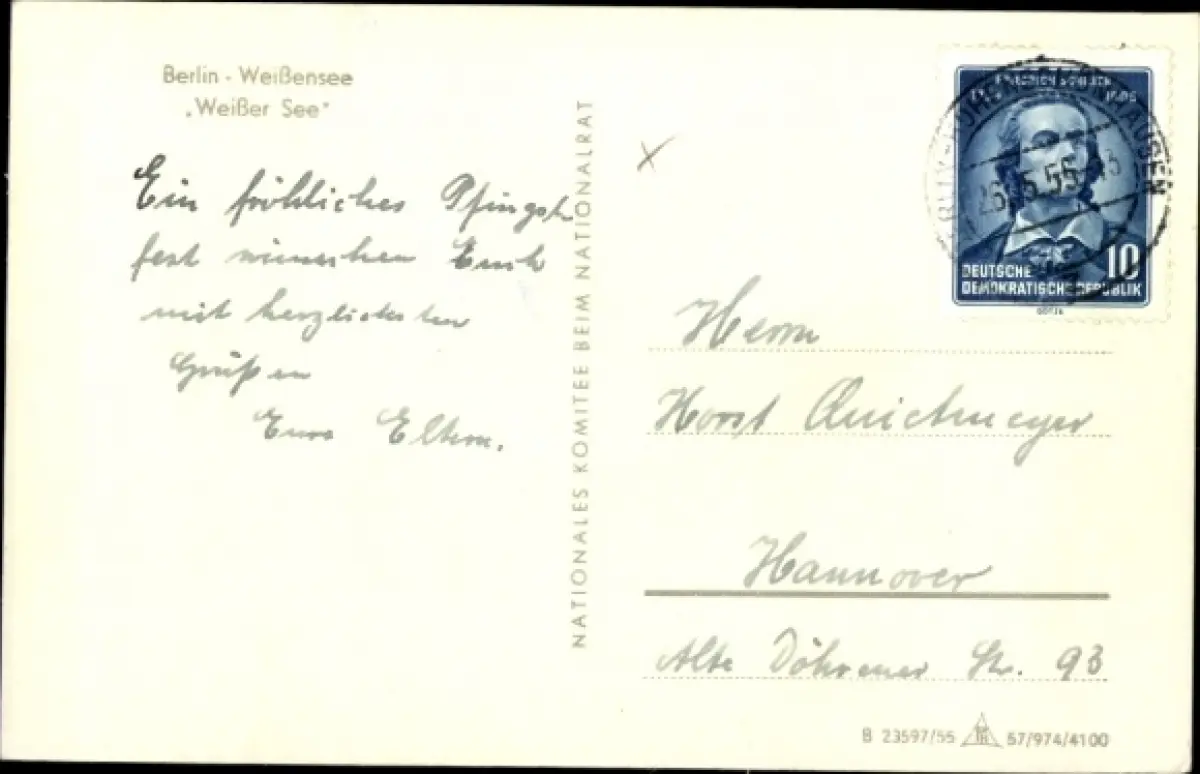 Berlin - Weißensee
„Weißer See"
Ein fröhliches Pfingst
fest wünschen Euch
mit herzlichsten
Grüßen
Eure Eltern.
NATIONALES KOMITEE BEIM NATIONALRAT
FRIEDRICH SCHILLER
26.5.55
DEUTSCHE
DEMOKRATISCHE REPUBLIK
10
Herrn
Horst
Hannover
Alte Döhrener Str. 93
B 23597/55 57/974/4100